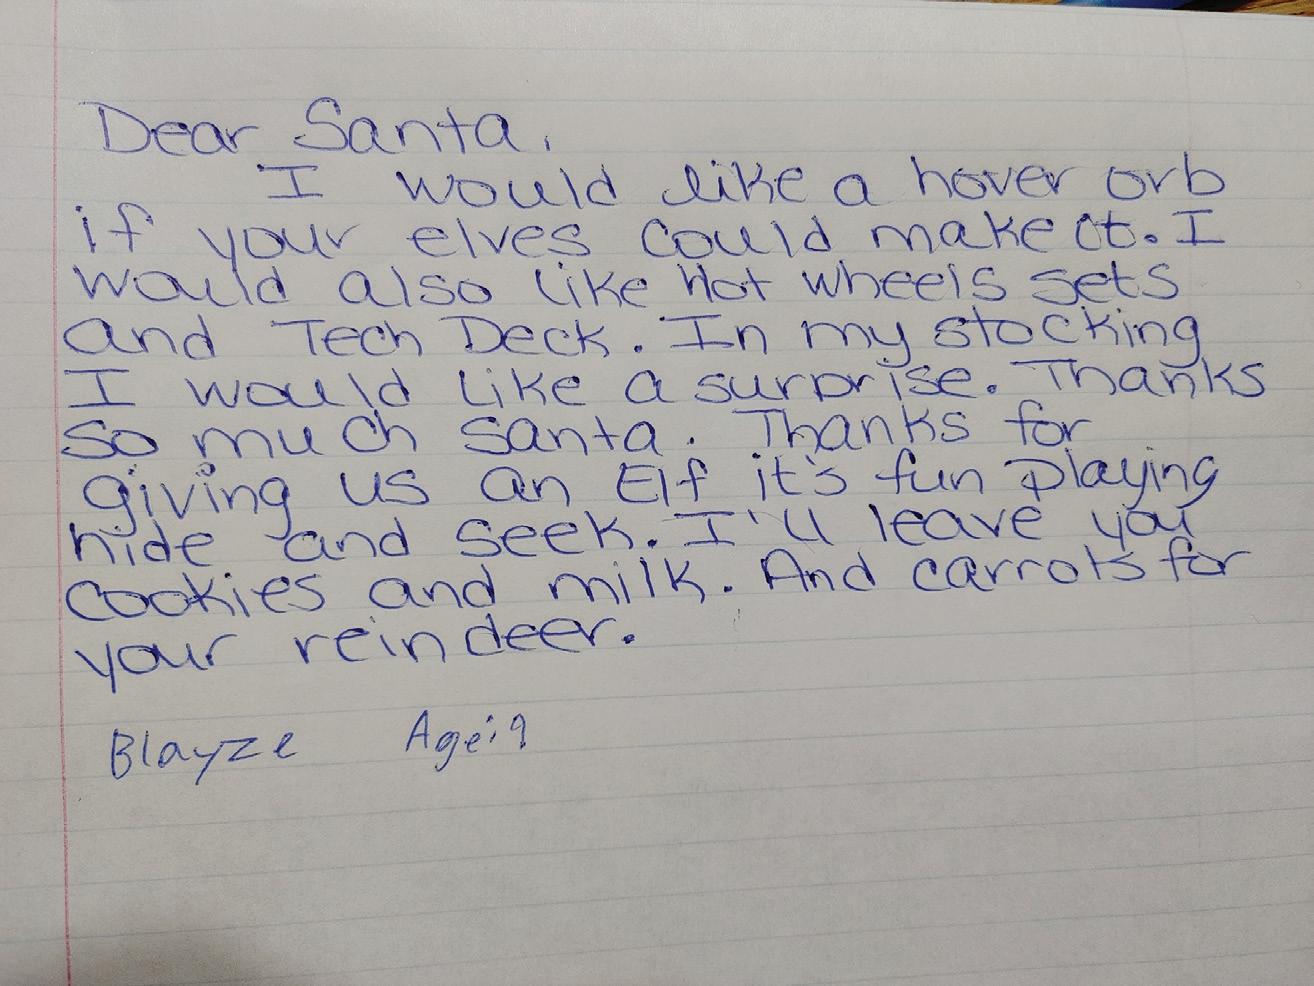 Dear Santa,
I would like a hover orb
if your elves could make it. I
would also like Hot wheels sets
and Tech Deck. In my stocking
I would like a surprise. Thanks
so much Santa. Thanks for
giving us an Elf it's fun playing
hide and seek. I'll leave you
cookies and milk. And carrots for
your reindeer.
Blayze Age: 9